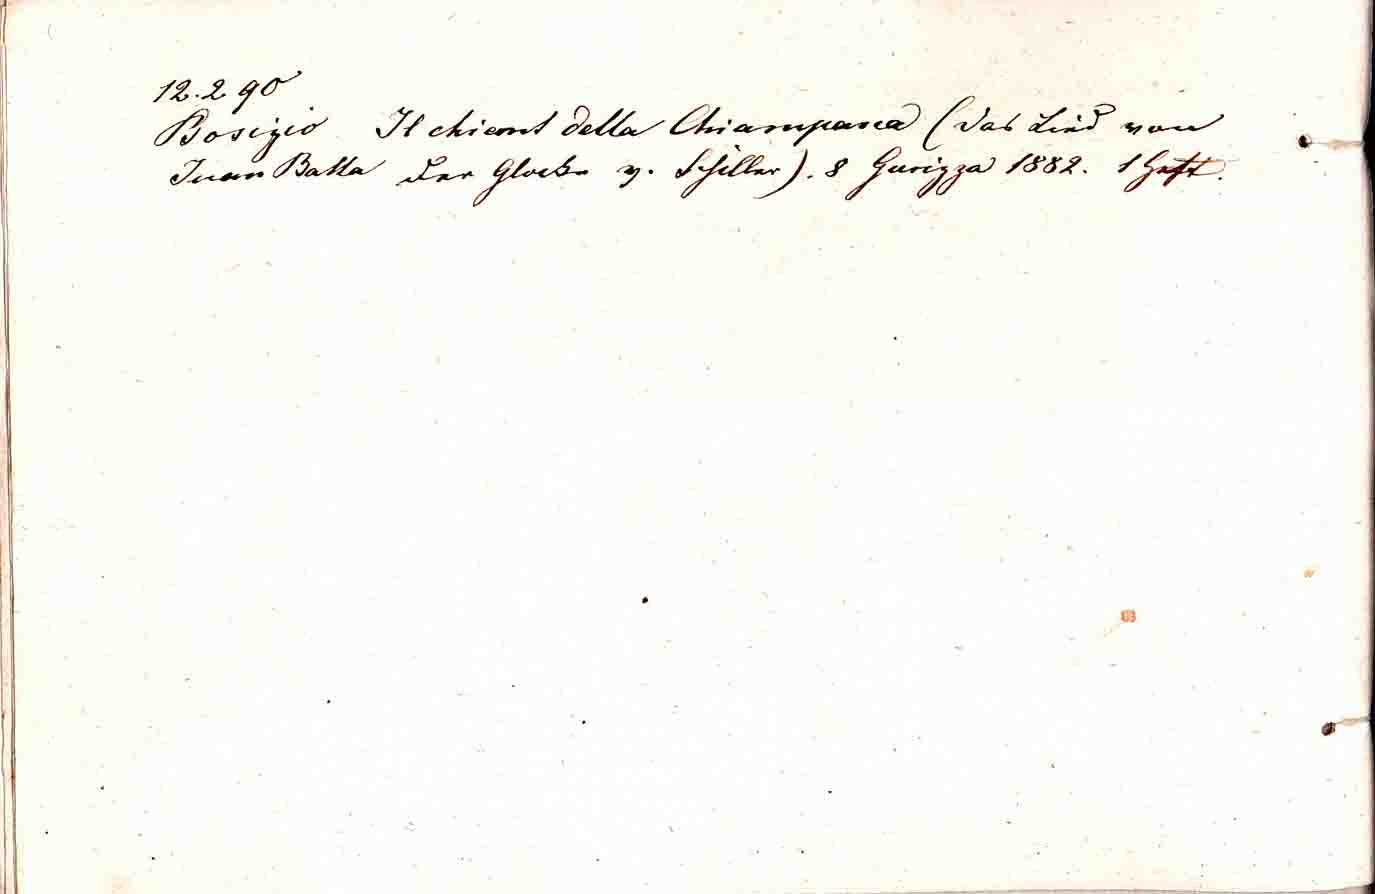 12.2 90
Bosizio Il chiant della Chiampana (das Lied von
Juan Batta der Glocke v. Schiller). 8 Gurizza 1882. 1 Heft.